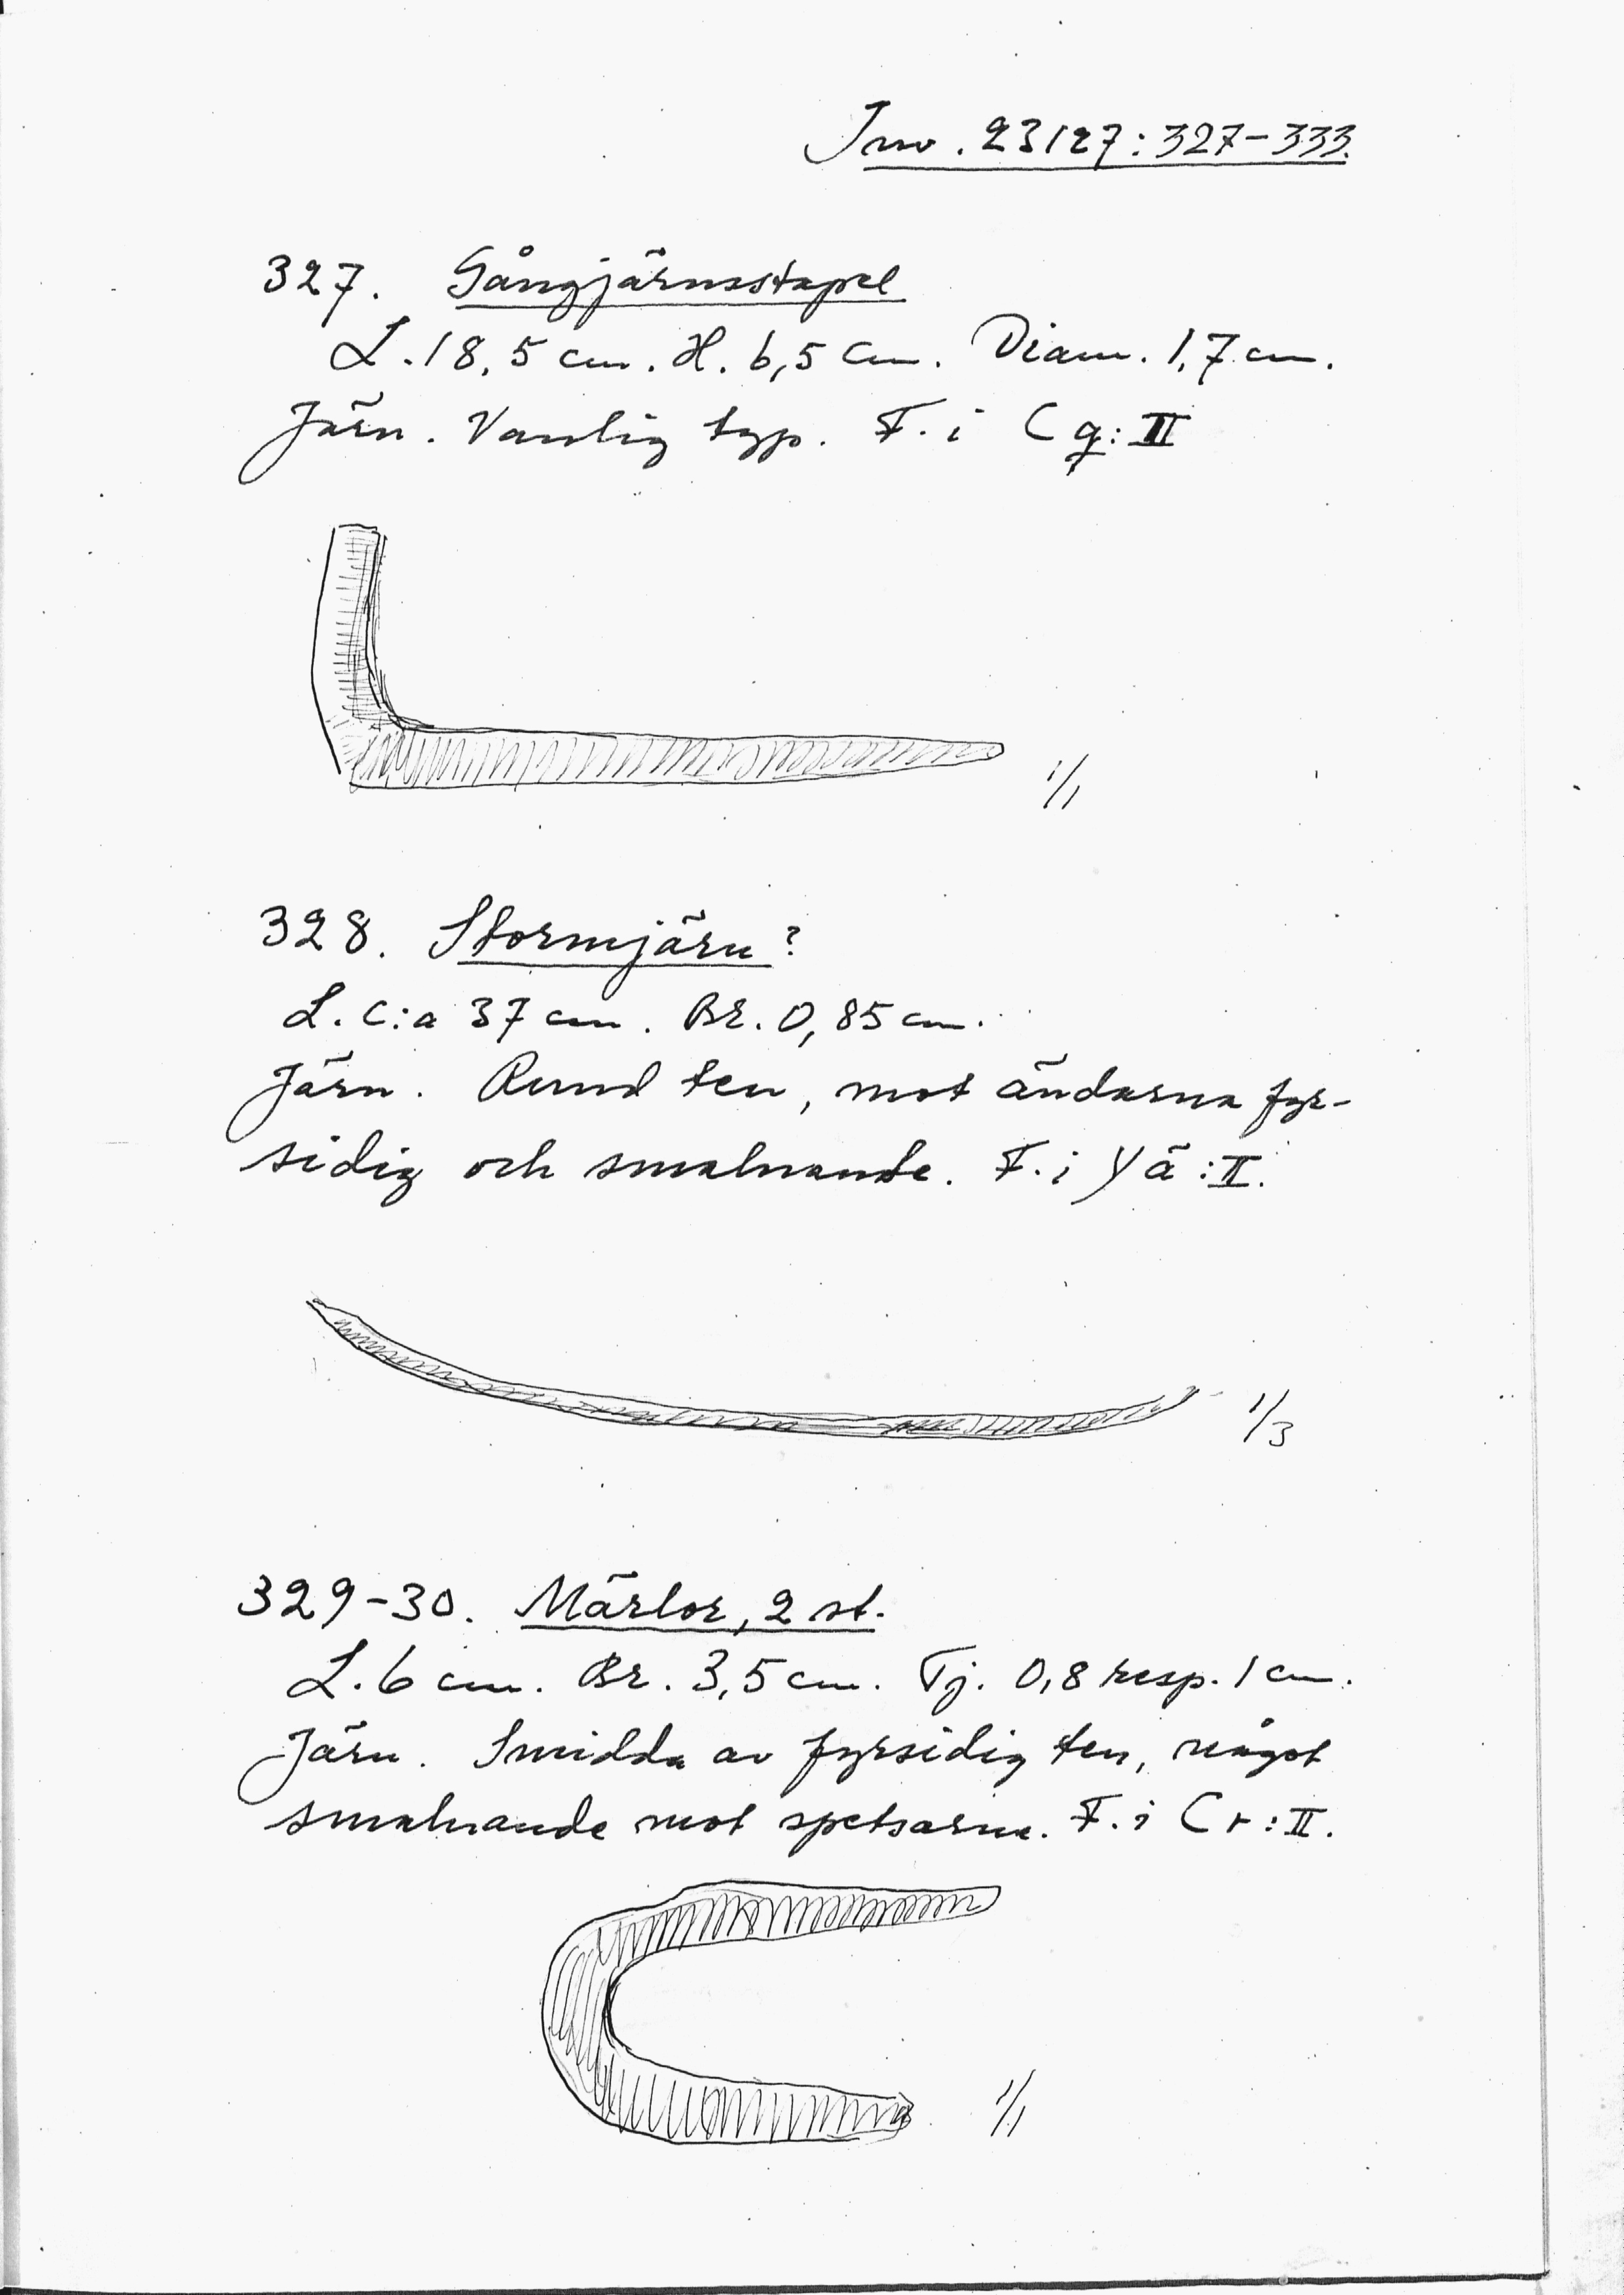 Inv. 23127:327-333.
327. Gångjärnsstapel
L. 18,5 cm. H. 6,5 cm. Diam. 1,7 cm.
Järn. Vanlig typ. F. i Cq:II
1/1
328. Stormjärn?
L. c:a 37 cm. Br. 0,85 cm.
Järn. Rund ten, mot ändarna fyr-
sidig och smalnande. F. i Yä:II.
1/3
329-30. Märlor, 2 st.
L. 6 cm. Br. 3,5 cm. Tj. 0,8 resp. 1 cm.
Järn. Smidda av fyrsidig ten, något
smalnande mot spetsarna. F. i Cr:II.
1/1